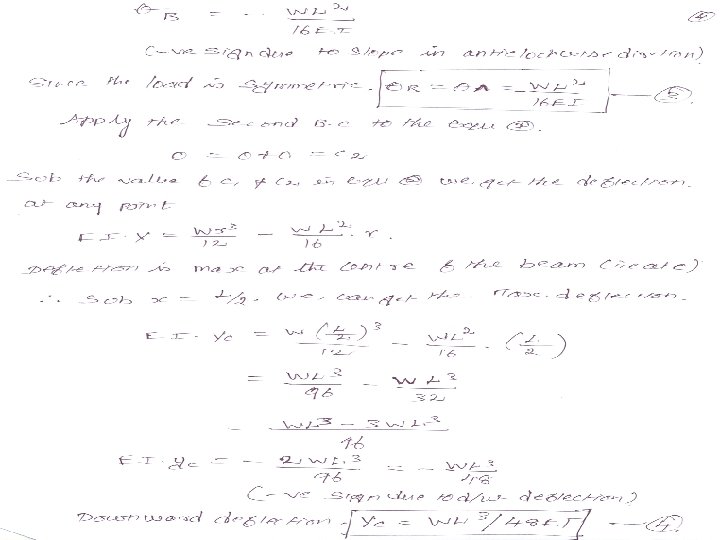 θB = - WL²
16EI
(-ve sign due to slope in anticlockwise direction)
Since the load is symmetric. θB = θA = - WL²/16EI — ③.
Apply the second B.C to the equ ②.
0 = 0 + 0 = C2
Sub the value of C1 & C2 in equ ② we get the deflection.
at any point
E.I.Y = Wx³/12 - WL²/16 . x.
Deflection is max at the centre of the beam (i.e at c)
∴ Sub x = L/2, we can get the max. deflection.
E.I. yc = W (L/2)³/12 - WL²/16 . (L/2)
= WL³/96 - WL³/32
= WL³ - 3WL³
96
E.I. yc = - 2WL³/96 = - WL³/48
(-ve sign due to d/w deflection)
Downward deflection, yc = WL³/48EI — ④